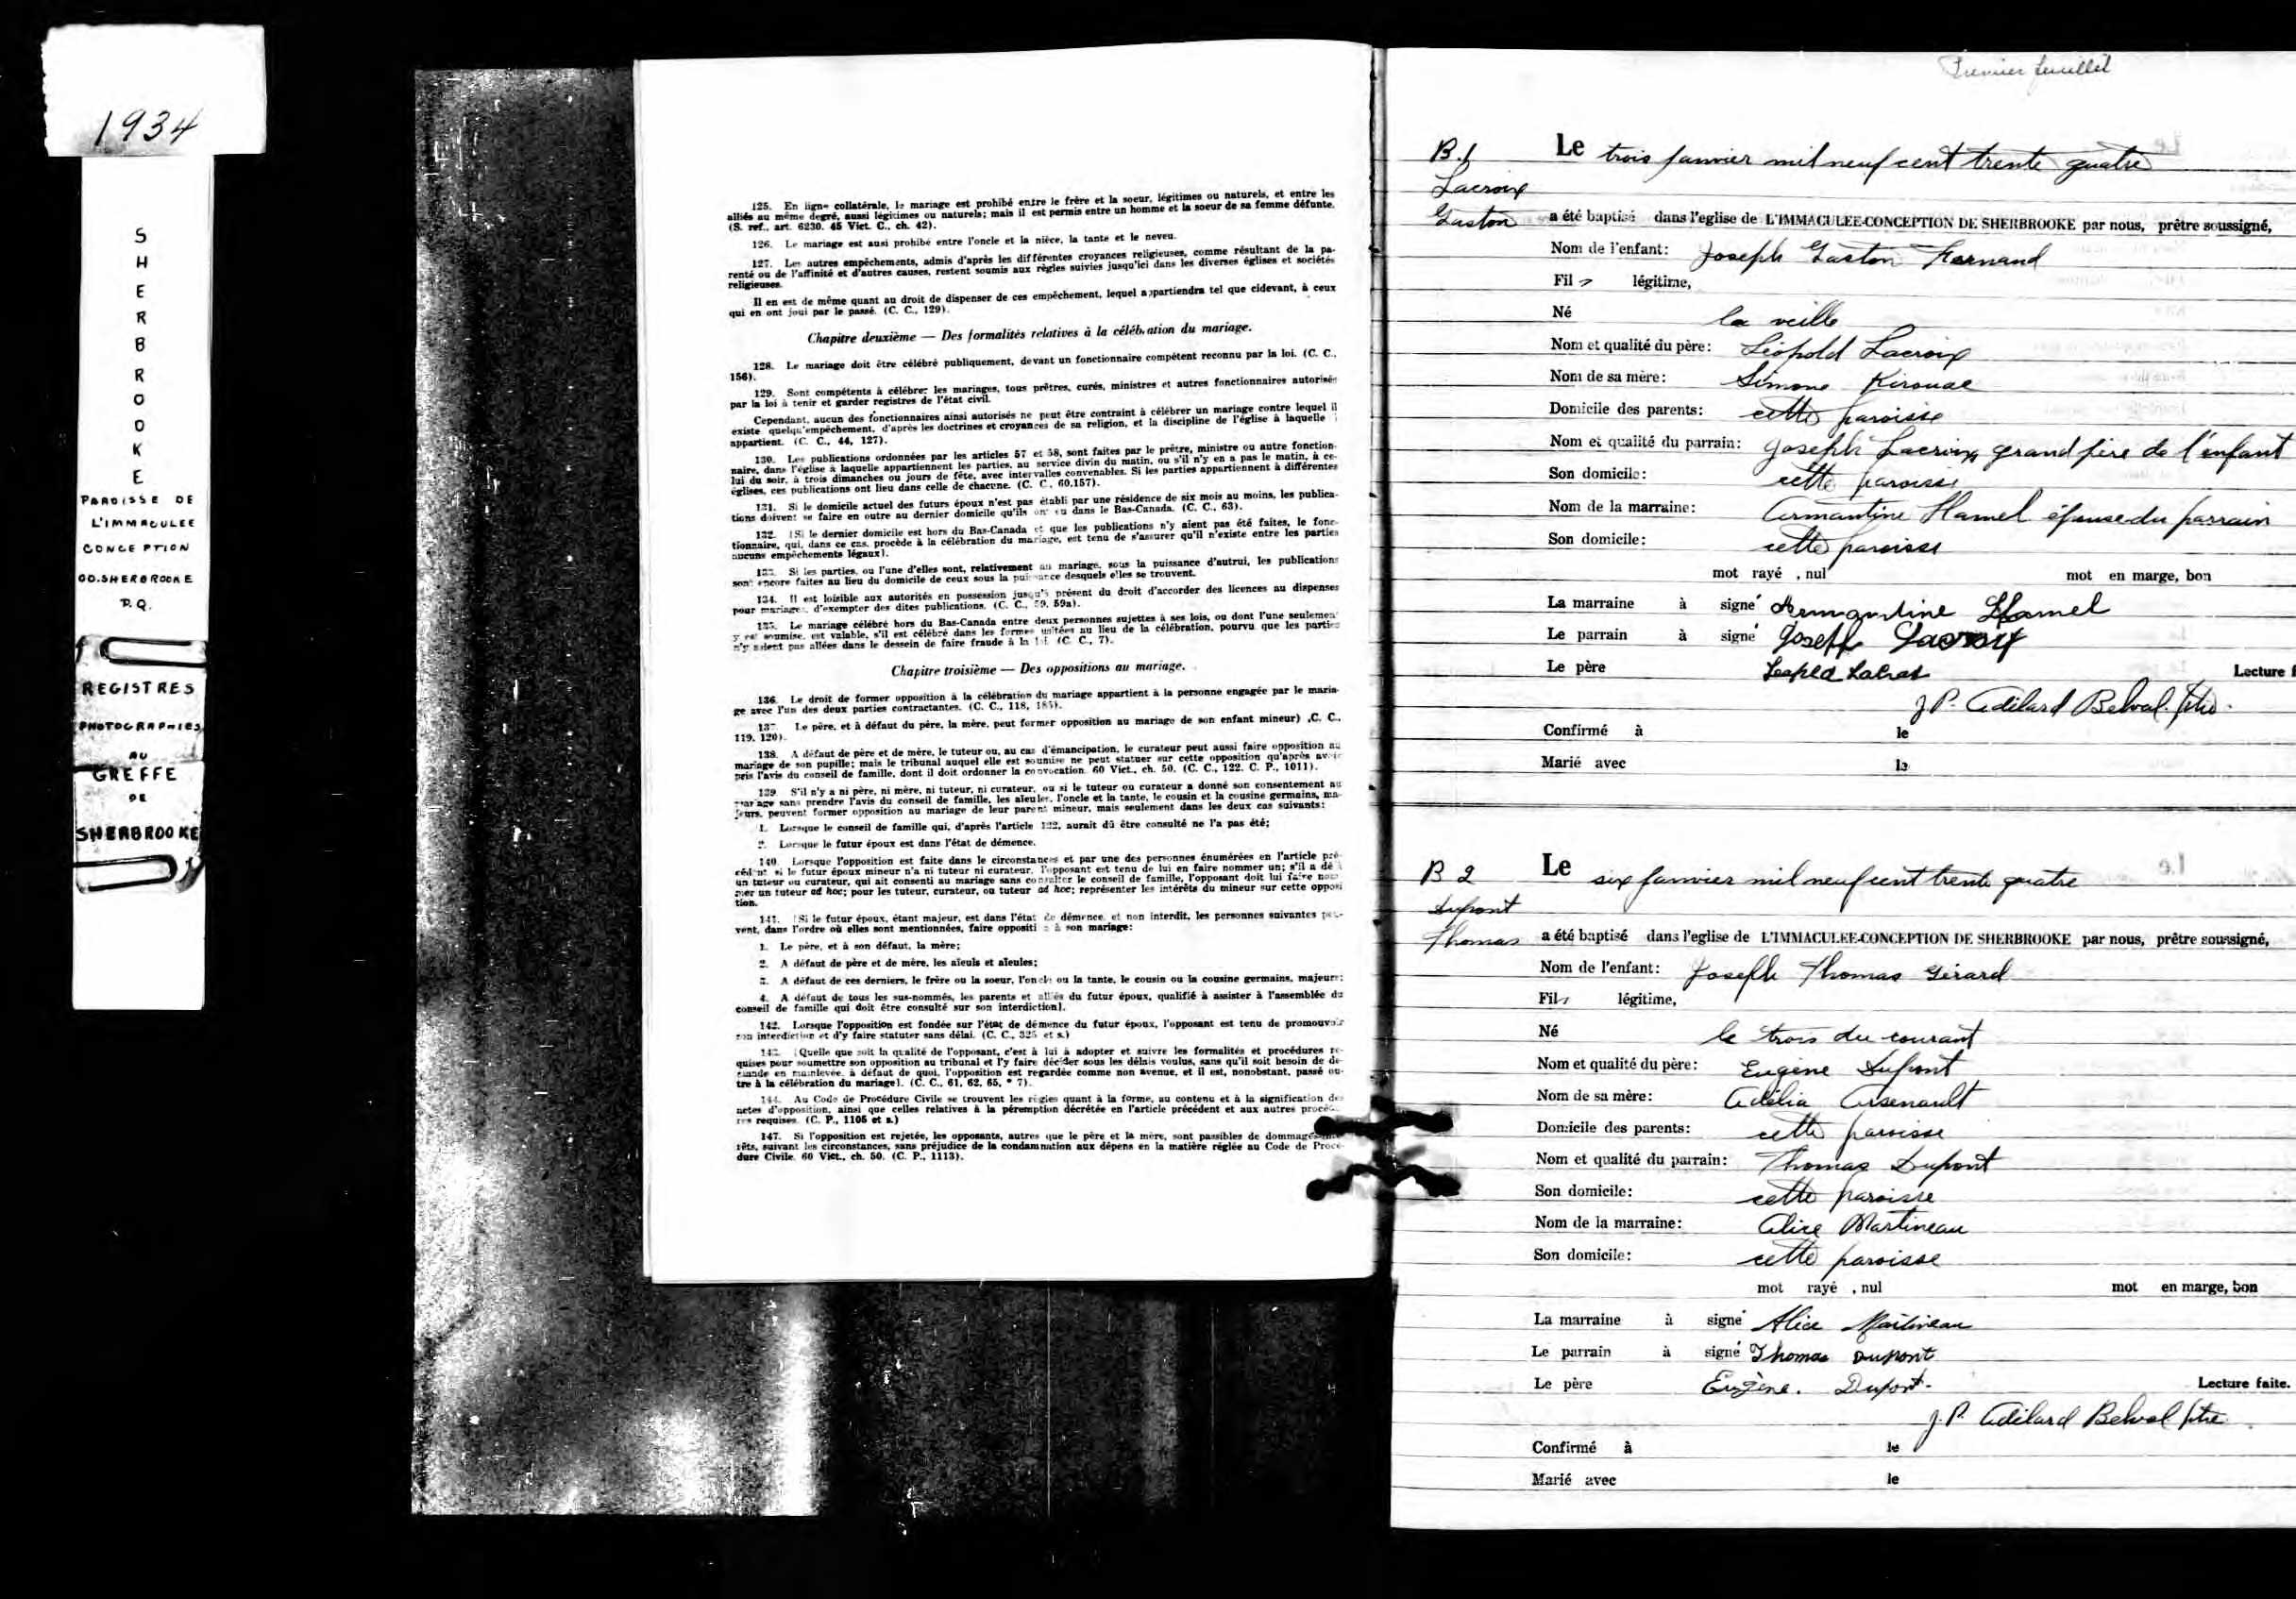 1934
SHERBROOKE
PAROISSE DE
L'IMMACULEE
CONCEPTION
CO. SHERBROOKE
P.Q.
REGISTRES
PHOTOGRAPHIES
AU
GREFFE
DE
SHERBROOKE
125. En ligne collatérale, le mariage est prohibé entre le frère et la soeur, légitimes ou naturels, et entre les
alliés au même degré, aussi légitimes ou naturels; mais il est permis entre un homme et la soeur de sa femme défunte.
(S. ref., art. 6230. 45 Vict. C., ch. 42).
126. Le mariage est ausi prohibé entre l'oncle et la nièce, la tante et le neveu.
127. Les autres empêchements, admis d'après les différentes croyances religieuses, comme résultant de la pa-
renté ou de l'affinité et d'autres causes, restent soumis aux règles suivies jusqu'ici dans les diverses églises et sociétés
religieuses.
Il en est de même quant au droit de dispenser de ces empêchement, lequel appartiendra tel que cidevant, à ceux
qui en ont joui par le passé. (C. C., 129).
Chapitre deuxième — Des formalités relatives à la célébration du mariage.
128. Le mariage doit être célébré publiquement, devant un fonctionnaire compétent reconnu par la loi. (C. C.,
156).
129. Sont compétents à célébrer les mariages, tous prêtres, curés, ministres et autres fonctionnaires autorisés
par la loi à tenir et garder registres de l'état civil.
Cependant, aucun des fonctionnaires ainsi autorisés ne peut être contraint à célébrer un mariage contre lequel il
existe quelqu'empêchement, d'après les doctrines et croyances de sa religion, et la discipline de l'église à laquelle
appartient. (C. C., 44, 127).
130. Les publications ordonnées par les articles 57 et 58, sont faites par le prêtre, ministre ou autre fonction-
naire, dans l'église à laquelle appartiennent les parties, au service divin du matin, ou s'il n'y en a pas le matin, à ce-
lui du soir, à trois dimanches ou jours de fête, avec intervalles convenables. Si les parties appartiennent à différentes
églises, ces publications ont lieu dans celle de chacune. (C. C., 60.157).
131. Si le domicile actuel des futurs époux n'est pas établi par une résidence de six mois au moins, les publica-
tions doivent se faire en outre au dernier domicile qu'ils ont eu dans le Bas-Canada. (C. C., 63).
132. [Si le dernier domicile est hors du Bas-Canada et que les publications n'y aient pas été faites, le fonc-
tionnaire, qui, dans ce cas, procède à la célébration du mariage, est tenu de s'assurer qu'il n'existe entre les parties
aucuns empêchements légaux].
133. Si les parties, ou l'une d'elles sont, relativement au mariage, sous la puissance d'autrui, les publications
sont encore faites au lieu du domicile de ceux sous la puissance desquels elles se trouvent.
134. Il est loisible aux autorités en possession jusqu'à présent du droit d'accorder des licences au dispenses
pour mariages, d'exempter des dites publications. (C. C., 59. 59a).
135. Le mariage célébré hors du Bas-Canada entre deux personnes sujettes à ses lois, ou dont l'une seulement
y est soumise, est valable, s'il est célébré dans les formes usitées au lieu de la célébration, pourvu que les parties
n'y soient pas allées dans le dessein de faire fraude à la loi. (C. C., 7).
Chapitre troisième — Des oppositions au mariage.
136. Le droit de former opposition à la célébration du mariage appartient à la personne engagée par le maria-
ge avec l'un des deux parties contractantes. (C. C., 118, 185).
137. Le père, et à défaut du père, la mère, peut former opposition au mariage de son enfant mineur) .C. C.,
119. 120).
138. A défaut de père et de mère, le tuteur ou, au cas d'émancipation, le curateur peut aussi faire opposition au
mariage de son pupille; mais le tribunal auquel elle est soumise ne peut statuer sur cette opposition qu'après avoir
pris l'avis du conseil de famille, dont il doit ordonner la convocation. 60 Vict., ch. 50. (C. C., 122. C. P., 1011).
139. S'il n'y a ni père, ni mère, ni tuteur, ni curateur, ou si le tuteur ou curateur a donné son consentement au
mariage sans prendre l'avis du conseil de famille, les aïeules, l'oncle et la tante, le cousin et la cousine germains, ma-
jeurs, peuvent former opposition au mariage de leur parent mineur, mais seulement dans les deux cas suivants:
1. Lorsque le conseil de famille qui, d'après l'article 122, aurait dû être consulté ne l'a pas été;
2. Lorsque le futur époux est dans l'état de démence.
140. Lorsque l'opposition est faite dans le circonstances et par une des personnes énumérées en l'article pré-
cédent si le futur époux mineur n'a ni tuteur ni curateur, l'opposant est tenu de lui en faire nommer un; s'il a dé
un tuteur ou curateur, qui ait consenti au mariage sans consulter le conseil de famille, l'opposant doit lui faire nom
mer un tuteur ad hoc; pour les tuteur, curateur, ou tuteur ad hoc; représenter les intérêts du mineur sur cette opposi
tion.
141. [Si le futur époux, étant majeur, est dans l'état de démence, et non interdit, les personnes suivantes peu-
vent, dans l'ordre où elles sont mentionnées, faire opposition à son mariage:
1. Le père, et à son défaut, la mère;
2. A défaut de père et de mère, les aïeuls et aïeules;
3. A défaut de ces derniers, le frère ou la soeur, l'oncle ou la tante, le cousin ou la cousine germains, majeurs;
4. A défaut de tous les sus-nommés, les parents et alliés du futur époux, qualifié à assister à l'assemblée du
conseil de famille qui doit être consulté sur son interdiction].
142. Lorsque l'opposition est fondée sur l'état de démence du futur époux, l'opposant est tenu de promouvoir
son interdiction et d'y faire statuter sans délai. (C. C., 325 et s.)
143. [Quelle que soit la qualité de l'opposant, c'est à lui à adopter et suivre les formalités et procédures re-
quises pour soumettre son opposition au tribunal et l'y faire décider sous les délais voulus, sans qu'il soit besoin de de-
mande en mainlevée, à défaut de quoi, l'opposition est regardée comme non avenue, et il est, nonobstant, passé ou-
tre à la célébration du mariage]. (C. C., 61, 62, 65, * 7).
144. Au Code de Procédure Civile se trouvent les règles quant à la forme, au contenu et à la signification des
actes d'opposition, ainsi que celles relatives à la péremption décrétée en l'article précédent et aux autres procédu-
res requises. (C. P., 1105 et s.)
147. Si l'opposition est rejetée, les opposants, autres que le père et la mère, sont passibles de dommages
rêts, suivant les circonstances, sans préjudice de la condamnation aux dépens en la matière réglée au Code de Procé-
dure Civile. 60 Vict., ch. 50. (C. P., 1113).
Premier feuillet
B. 1
Lacroix
Gaston
Le trois janvier mil neuf cent trente quatre
a été baptisé dans l'eglise de L'IMMACULEE-CONCEPTION DE SHERBROOKE par nous, prêtre soussigné,
Nom de l'enfant: Joseph Gaston Fernand
Fils légitime,
Né la veille
Nom et qualité du père: Léopold Lacroix
Nom de sa mère: Simone Kirouac
Domicile des parents: cette paroisse
Nom et qualité du parrain: Joseph Lacroix grand père de l'enfant
Son domicile: cette paroisse
Nom de la marraine: Armantine Hamel épouse du parrain
Son domicile: cette paroisse
mot rayé , nul mot en marge, bon
La marraine à signé Armantine Hamel
Le parrain à signé Joseph Lacroix
Le père Leopold
Lecture f
J. P. Adélard Belval ptre.
Confirmé à le
Marié avec le
B 2
Dupont
Thomas
Le six janvier mil neuf cent trente quatre
a été baptisé dans l'eglise de L'IMMACULEE-CONCEPTION DE SHERBROOKE par nous, prêtre soussigné,
Nom de l'enfant: Joseph Thomas Gérard
Fils légitime,
Né le trois du courant
Nom et qualité du père: Eugène Dupont
Nom de sa mère: Adélia Arsenault
Domicile des parents: cette paroisse
Nom et qualité du parrain: Thomas Dupont
Son domicile: cette paroisse
Nom de la marraine: Alice Martineau
Son domicile: cette paroisse
mot rayé , nul mot en marge, bon
La marraine à signé Alice Martineau
Le parrain à signé Thomas Dupont
Le père Eugène. Dupont.
Lecture faite.
J. P. Adélard Belval ptre.
Confirmé à le
Marié avec le